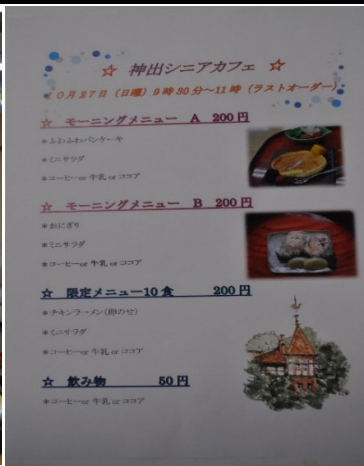 ☆ 神出シニアカフェ ☆
10月27日（日曜）9時30分～11時（ラストオーダー）
☆ モーニングメニュー A 200円
＊ふわふわパンケーキ
＊ミニサラダ
＊コーヒーor 牛乳 or ココア
☆ モーニングメニュー B 200円
＊おにぎり
＊ミニサラダ
＊コーヒーor 牛乳 or ココア
☆ 限定メニュー10食 200円
＊チキンラーメン（卵のせ）
＊ミニサラダ
＊コーヒーor 牛乳 or ココア
☆ 飲み物 50円
＊コーヒーor 牛乳 or ココア